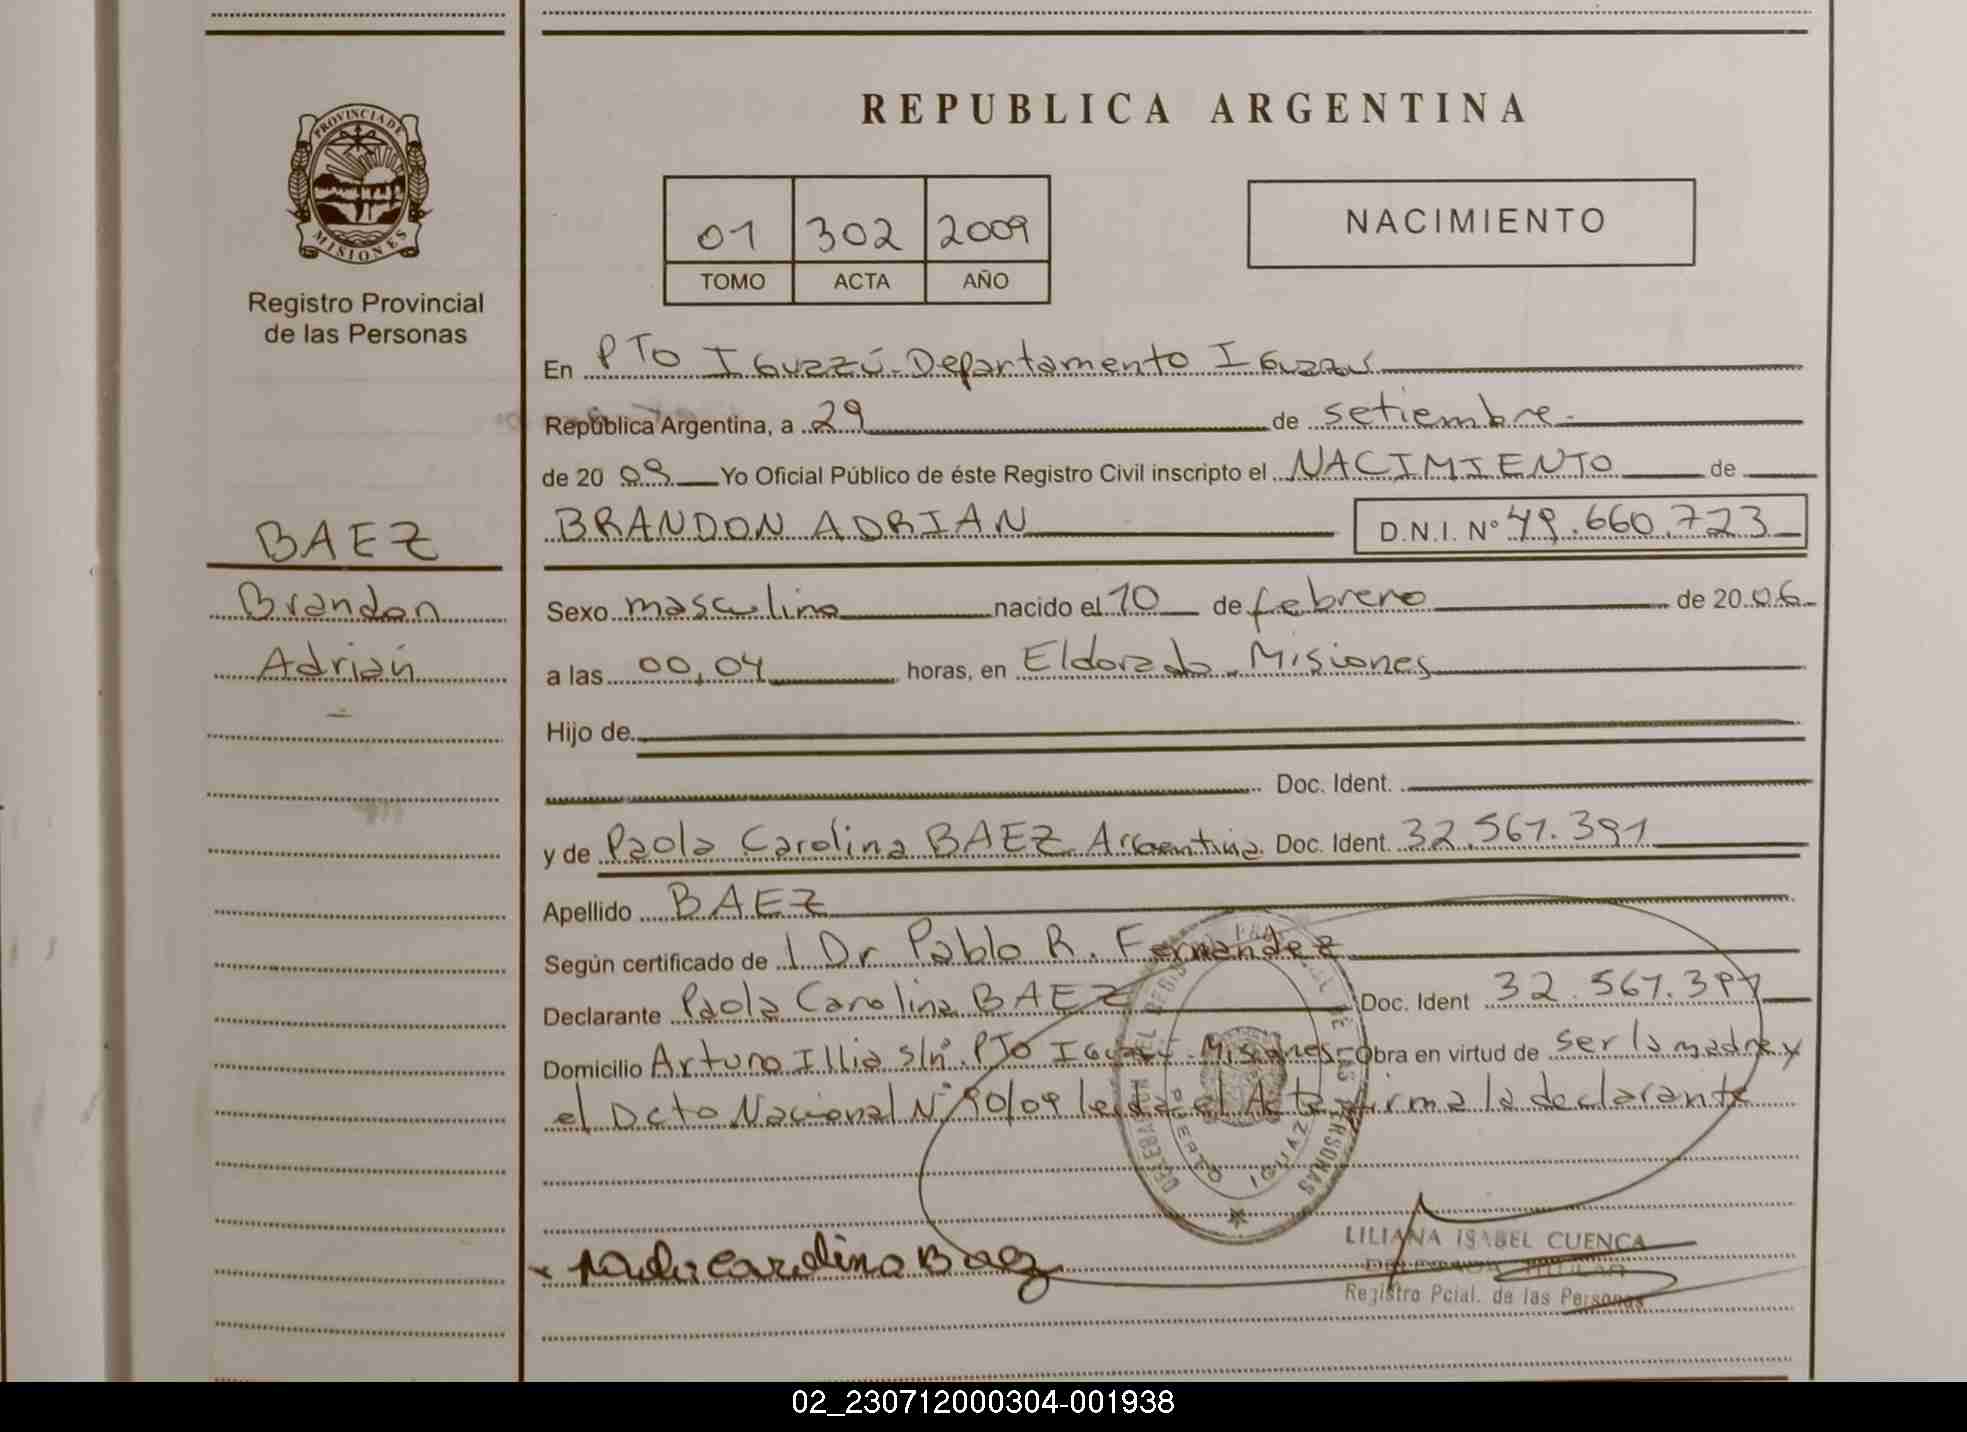 PROVINCIA DE
MISIONES
Registro Provincial
de las Personas
BAEZ
Brandon
Adrian
REPUBLICA ARGENTINA
01 302 2009
TOMO ACTA AÑO
NACIMIENTO
En PTO Iguazú - Departamento Iguazú
República Argentina, a 29 de setiembre
de 20 09 Yo Oficial Público de éste Registro Civil inscripto el NACIMIENTO de
BRANDON ADRIAN D.N.I. Nº 49.660.723
Sexo masculino nacido el 10 de febrero de 20 06
a las 00,04 horas, en Eldorado - Misiones
Hijo de
Doc. Ident.
y de Paola Carolina BAEZ Argentina Doc. Ident. 32.567.391
Apellido BAEZ
Según certificado de Dr Pablo R. Fernandez
Declarante Paola Carolina BAEZ Doc. Ident 32.567.391
Domicilio Arturo Illia s/nº. PTO Iguazú - Misiones - Obra en virtud de ser la madre y
el Dcto Nacional Nº 90/09 leída el Acta firma la declarante
Carolina Baez
LILIANA ISABEL CUENCA
DELEGADA TITULAR
Registro Pcial. de las Personas
02_230712000304-001938